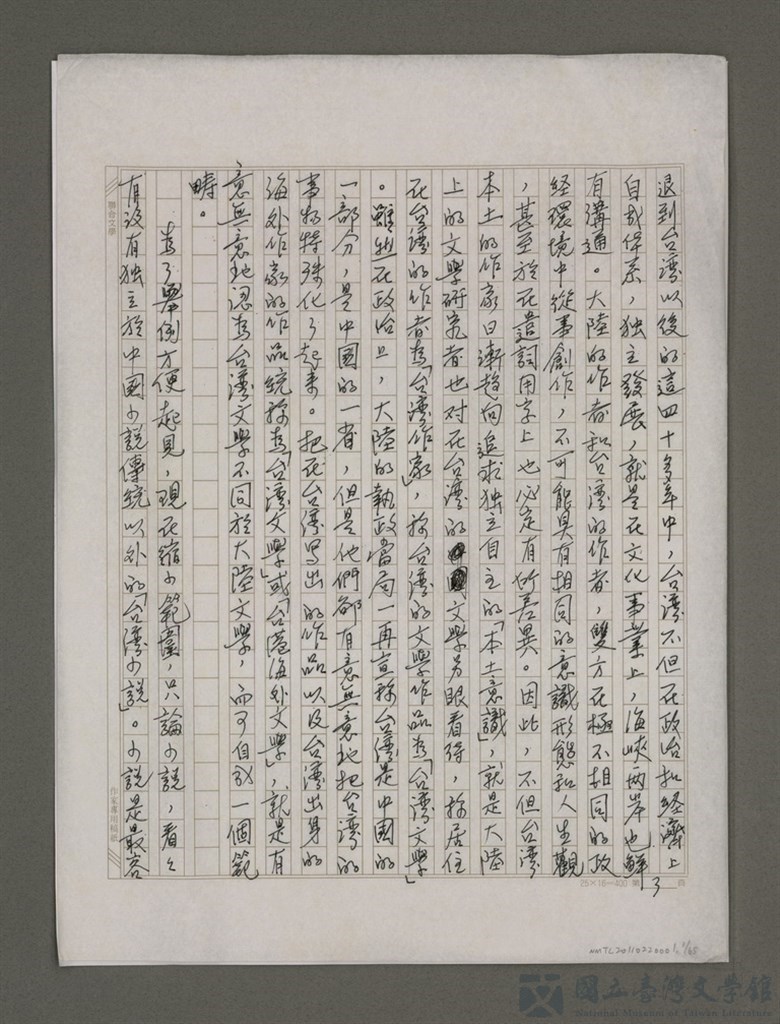 退到台湾以後的這四十多年中，台湾不但在政治和経濟上
自成体系，独立發展，就是在文化事業上，海峽两岸也鮮
有溝通。大陸的作者和台湾的作者，雙方在極不相同的政
経環境中從事創作，不可能具有相同的意識形態和人生觀
，甚至於在遣詞用字上也必定有所差異。因此，不但台湾
本土的作家日漸趋向追求独立自主的「本土意識」，就是大陸
上的文學研究者也对在台湾的文學另眼看待，称居住
在台湾的作者為「台湾作家」，称台湾的文學作品為「台湾文學」
。雖然在政治上，大陸的執政當局一再宣称台湾是中國的
一部分，是中國的一省，但是他們都有意無意地把台湾的
事物特殊化了起来。把在台湾写出的作品以及台湾出身的
海外作家的作品統称為「台湾文學」或「台港海外文學」，就是有
意無意地認為台湾文學不同於大陸文學，而可自成一個範
畴。
為了舉例方便起見，現在縮小範圍，只論小説，看看
有没有独立於中國小説傳統以外的「台湾小説」。小説是最容
聯合文學
作家專用稿紙
25×16=400 第 3 頁
NMTL20110220001
國立臺灣文學館
National Museum of Taiwan Literature